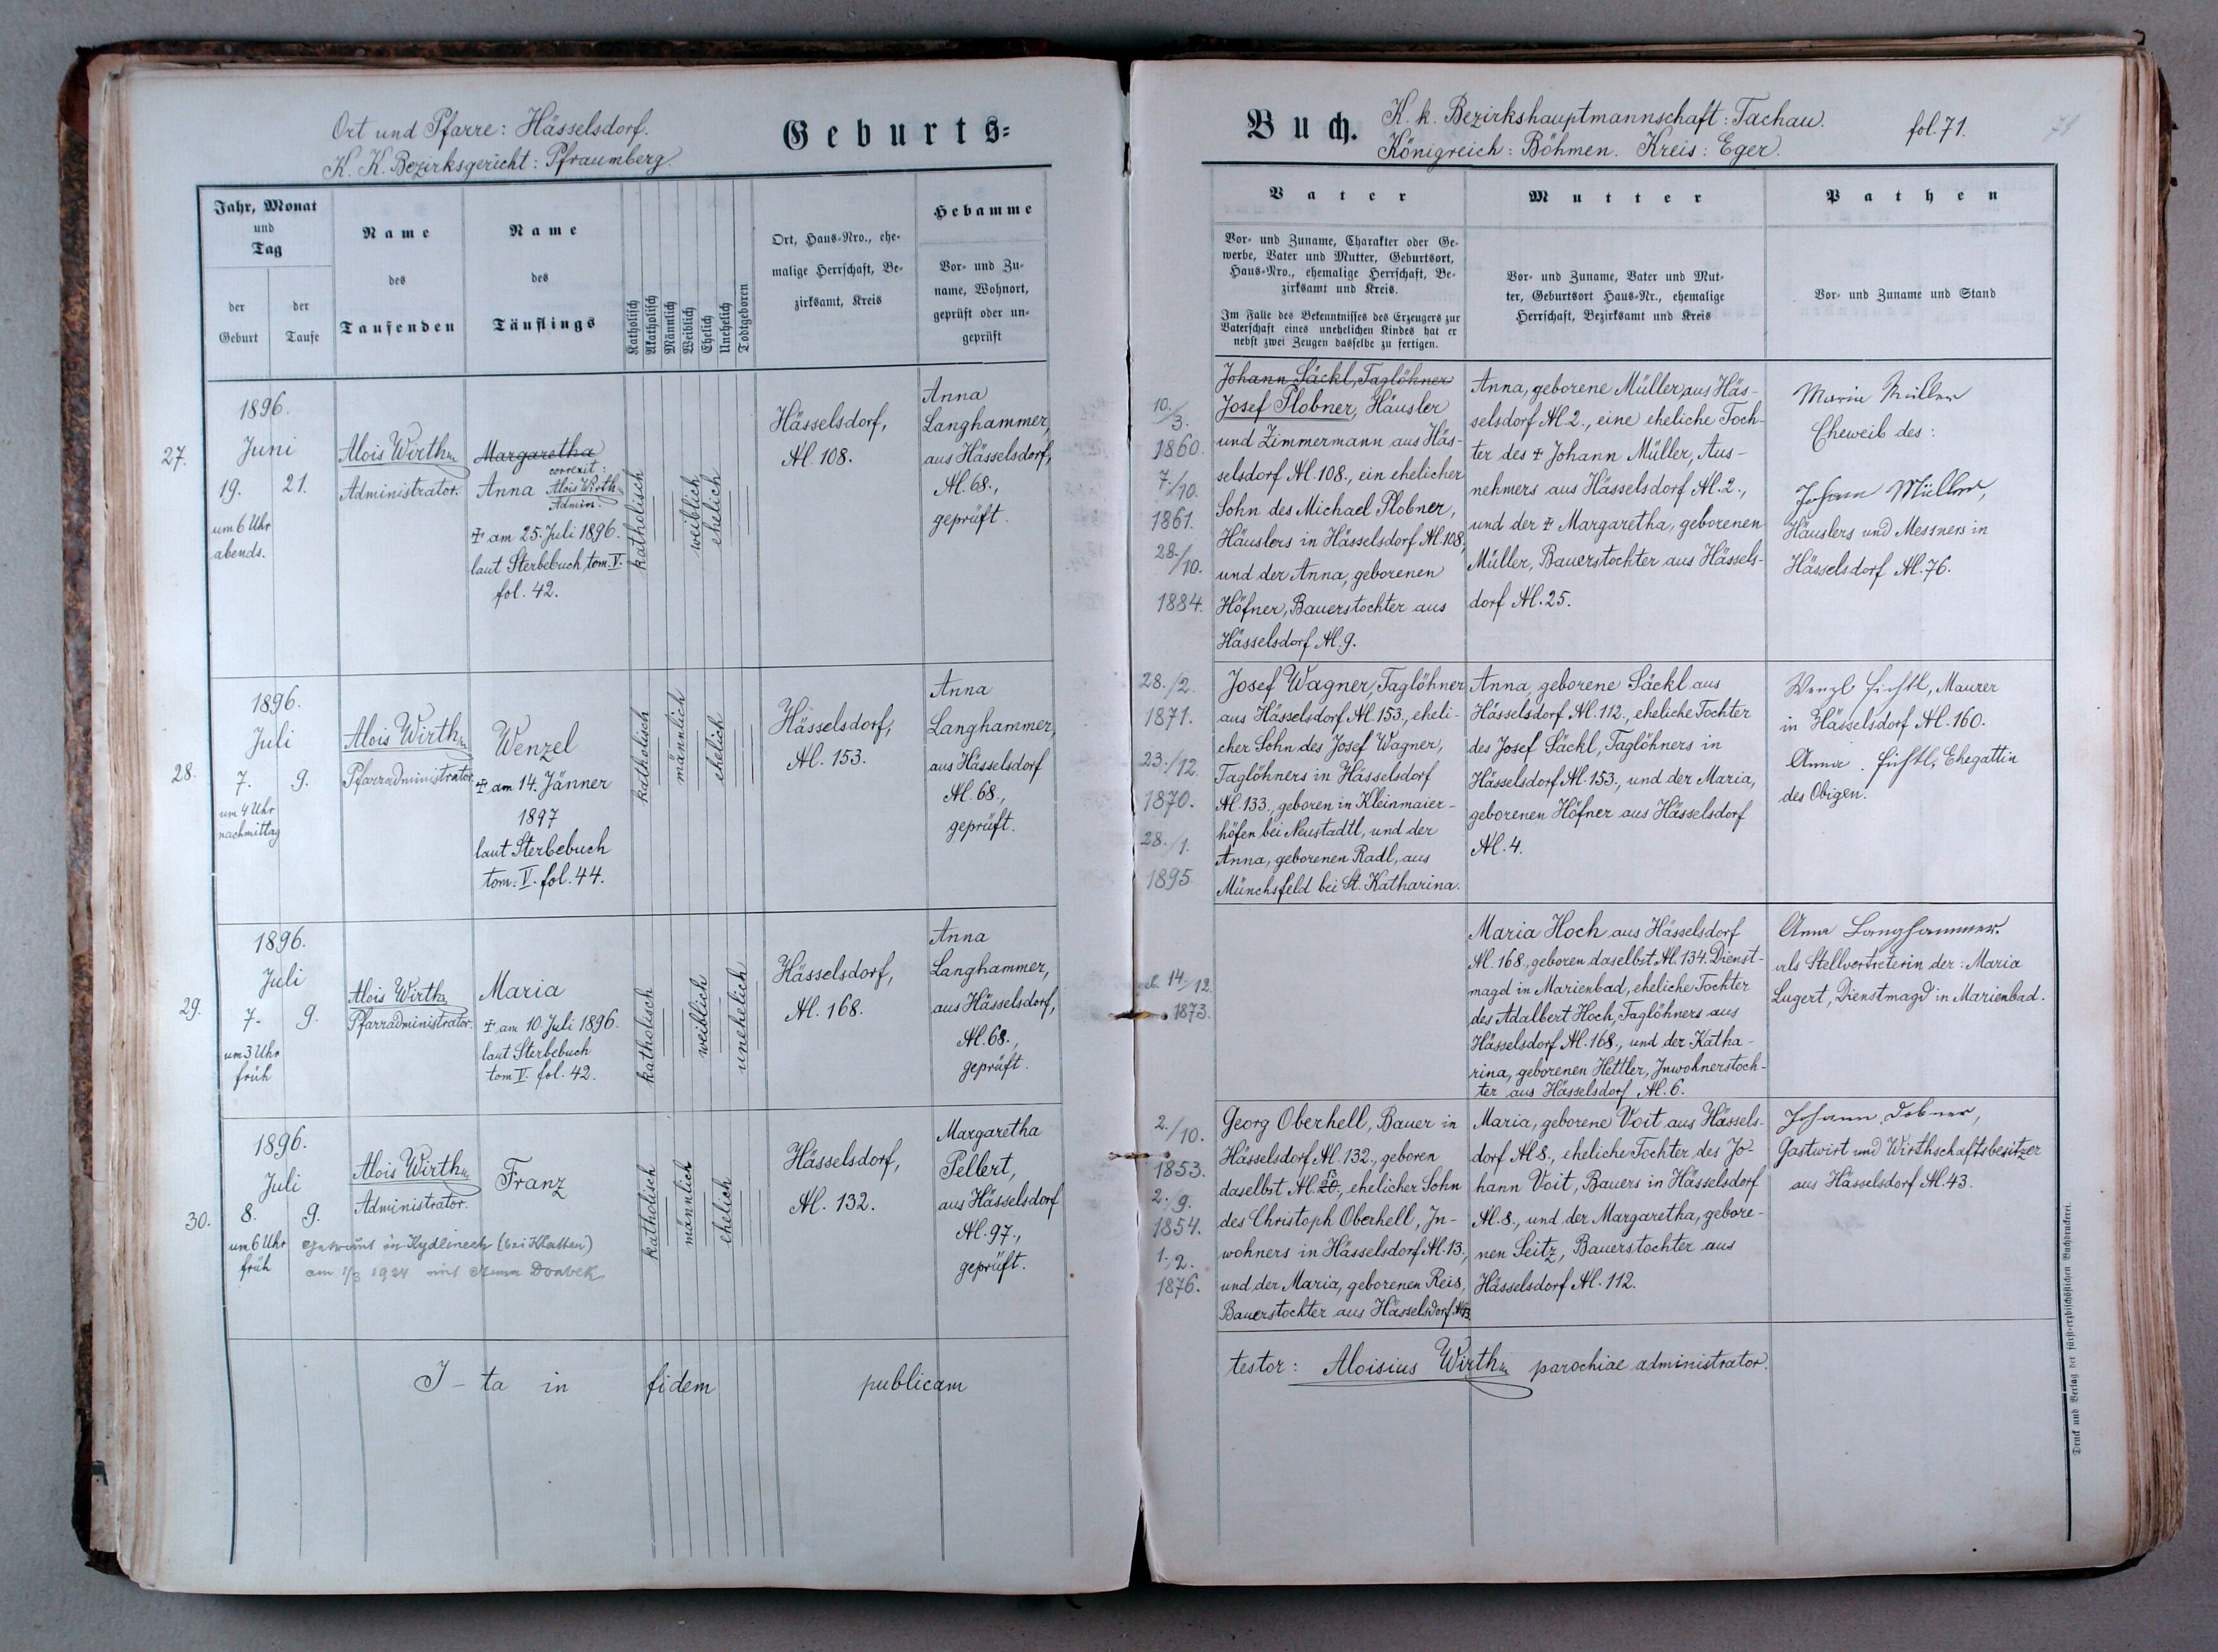 Ort und Pfarre: Hässelsdorf.
K. K. Bezirksgericht: Pfraumberg.
Geburts=
Jahr, Monat
und
Tag
der
Geburt
der
Taufe
Name
des
Taufenden
Name
des
Täuflings
Katholisch
Akatholisch
Männlich
Weiblich
Ehelich
Unehelich
Todtgeboren
Ort, Haus-Nro., ehe-
malige Herrschaft, Be-
zirksamt, Kreis
Hebamme
Vor- und Zu-
name, Wohnort,
geprüft oder un-
geprüft
27.
1896.
Juni
19. 21.
um 6 Uhr
abends.
Alois Wirth
Administrator.
Margaretha
correxit:
Anna Alois Wirth
Admin.
+ am 25. Juli 1896.
laut Sterbebuch, tom. V.
fol. 42.
katholisch
weiblich
ehelich
Hässelsdorf,
N. 108.
Anna
Langhammer,
aus Hässelsdorf,
N. 68.,
geprüft.
28.
1896.
Juli
7. 9.
um 4 Uhr
nachmittag
Alois Wirth
Pfarradministrator.
Wenzel
+ am 14. Jänner
1897
laut Sterbebuch
tom. V. fol. 44.
katholisch
männlich
ehelich
Hässelsdorf,
N. 153.
Anna
Langhammer,
aus Hässelsdorf
N. 68.,
geprüft.
29.
1896.
Juli
7. 9.
um 3 Uhr
früh
Alois Wirth
Pfarradministrator.
Maria
+ am 10. Juli 1896.
laut Sterbebuch
tom V. fol. 42.
katholisch
weiblich
unehelich
Hässelsdorf,
N. 168.
Anna
Langhammer,
aus Hässelsdorf,
N. 68.,
geprüft.
30.
1896.
Juli
8. 9.
um 6 Uhr
früh
Alois Wirth
Administrator.
Franz
getraut in Kydlinech (bei Klattau)
am 1/3 1924 mit Donbek
katholisch
männlich
ehelich
Hässelsdorf,
N. 132.
Margaretha
Pellert,
aus Hässelsdorf
N. 97.,
geprüft.
I-ta in fidem publicam
Buch.
K. k. Bezirkshauptmannschaft: Tachau.
Königreich: Böhmen. Kreis: Eger.
fol. 71.
71
Vater
Vor- und Zuname, Charakter oder Ge-
werbe, Vater und Mutter, Geburtsort,
Haus-Nro., ehemalige Herrschaft, Be-
zirksamt und Kreis.
Im Falle des Bekenntnisses des Erzeugers zur
Vaterschaft eines unehelichen Kindes hat er
nebst zwei Zeugen dasselbe zu fertigen.
Mutter
Vor- und Zuname, Vater und Mut-
ter, Geburtsort Haus-Nr., ehemalige
Herrschaft, Bezirksamt und Kreis
Pathen
Vor- und Zuname und Stand
10./3.
1860.
7./10.
1861.
28./10.
1884.
Johann Säckl, Taglöhner
Josef Plobner, Häusler
und Zimmermann aus Häs-
selsdorf N. 108., ein ehelicher
Sohn des Michael Plobner,
Häuslers in Hässelsdorf N. 108,
und der Anna, geborenen
Höfner, Bauerstochter aus
Hässelsdorf N. 9.
Anna, geborene Müller, aus Häs-
selsdorf N. 2., eine eheliche Toch-
ter des + Johann Müller, Aus-
nehmers aus Hässelsdorf N. 2.,
und der + Margaretha, geborenen
Müller, Bauerstochter aus Hässels-
dorf N. 25.
Maria Müller
Eheweib des:
Johann Müller,
Häuslers und Messners in
Hässelsdorf N. 76.
28./2.
1871.
23./12.
1870.
28./1.
1895.
Josef Wagner, Taglöhner
aus Hässelsdorf N. 153., eheli-
cher Sohn des Josef Wagner,
Taglöhners in Hässelsdorf
N. 133., geboren in Kleinmaier-
höfen bei Neustadtl, und der
Anna, geborenen Radl, aus
Münchsfeld bei St. Katharina.
Anna, geborene Säckl aus
Hässelsdorf N. 112., eheliche Tochter
des Josef Säckl, Taglöhners in
Hässelsdorf N. 153., und der Maria,
geborenen Höfner aus Hässelsdorf
N. 4.
Wenzl Fischtl, Maurer
in Hässelsdorf N. 160.
Anna Fischtl, Ehegattin
des Obigen.
14./12.
1873.
Maria Hoch aus Hässelsdorf
N. 168., geboren daselbst N. 134. Dienst-
magd in Marienbad, eheliche Tochter
des Adalbert Hoch, Taglöhners aus
Hässelsdorf N. 168., und der Katha-
rina, geborenen Hettler, Inwohnerstoch-
ter aus Hässelsdorf N. 6.
Anna Langhammer
als Stellvertreterin der: Maria
Lugert, Dienstmagd in Marienbad.
2./10.
1853.
2./9.
1854.
1./2.
1876.
Georg Oberhell, Bauer in
Hässelsdorf N. 132., geboren
daselbst N. 20. 13, ehelicher Sohn
des Christoph Oberhell, In-
wohners in Hässelsdorf N. 13.,
und der Maria, geborenen Reis,
Bauerstochter aus Hässelsdorf N. 13.
Maria, geborene Voit aus Hässels-
dorf N 8., eheliche Tochter des Jo-
hann Voit, Bauers in Hässelsdorf
N. 8., und der Margaretha, gebore-
nen Seitz, Bauerstochter aus
Hässelsdorf N. 112.
Johann Dobner,
Gastwirt und Wirthschaftsbesitzer
aus Hässelsdorf N. 43.
testor: Aloisius Wirth parochiae administrator.
Druck und Verlag der fürst-erzbischöflichen Buchdruckerei.